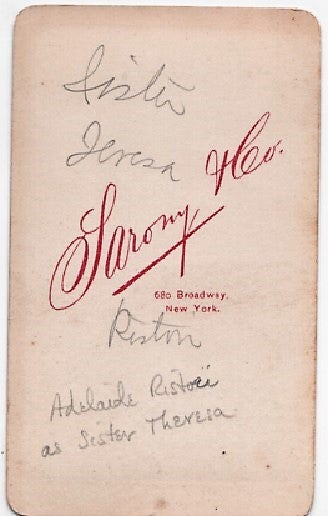 Sister
Teresa
Sarony & Co.
680 Broadway,
New York.
Riston
Adelaide Ristori
as Sister Theresa